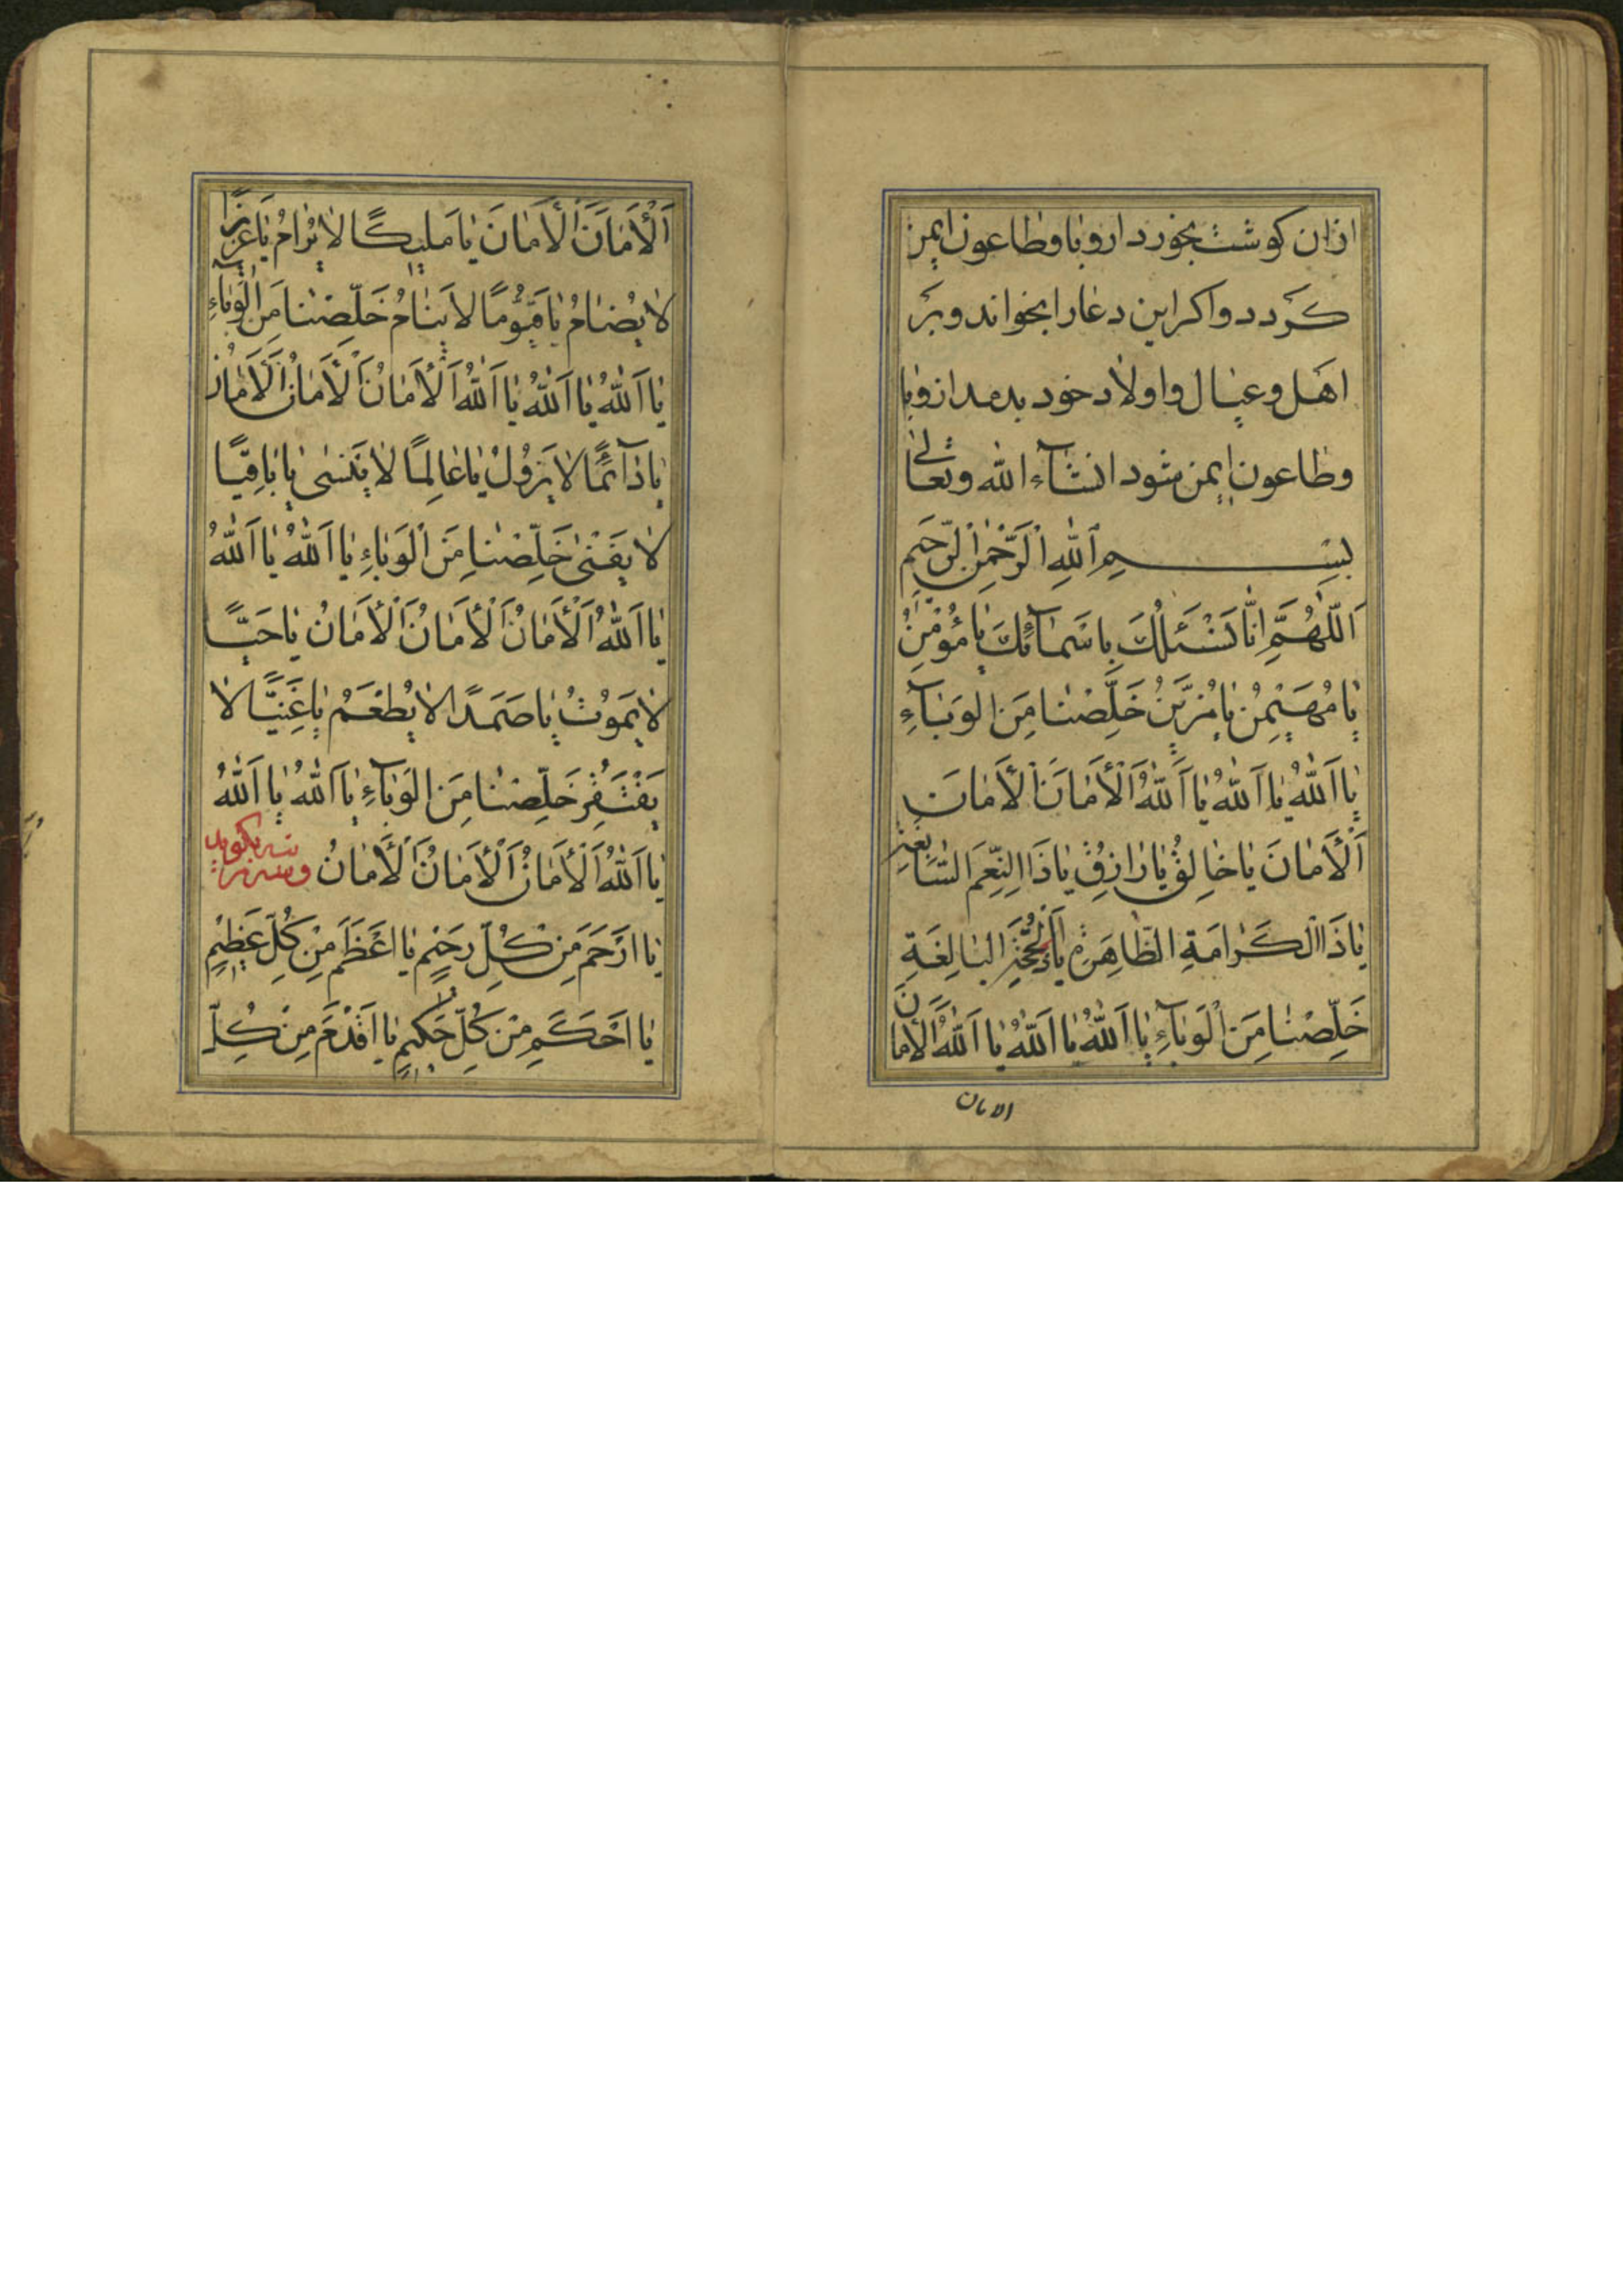 ازان کوشت بخورد از وبا و طاعون ایمن
کَردد و اکر این دعا را بخواند و بَر
اهَل و عیال و اولاد خود بدمد از وبا
و طاعون ایمن شود انشآء الله و تعالی
بِسْمِ ٱللّٰهِ ٱلْرَّحْمٰنِ ٱلْرَّحیَمِ
اَللّٰهُمَّ اِنّٰا نَسْئَلُكَ بِاسَمٰآئِكَ یٰا مُؤْمِنُ
یٰا مُهَیْمِنُ یٰا مُزَیِّنُ خَلِّصْنٰا مِنَ الوَبٰآءِ
یٰا اَللّٰهُ یٰا اَللّٰهُ یٰا اَللّٰهُ اَلْأَمٰانَ اَلْأَمٰانَ
اَلْأَمٰانَ یٰا خٰالِقُ یٰا رٰازِقُ یٰا ذَا النِّعَمِ السّٰابِغَةِ
یٰا ذَا الْكَرٰامَةِ الظّٰاهِرَةِ یٰا ذَا الْحُجَّةِ البٰالِغَةِ
خَلِّصْنٰا مِنَ الْوَبٰآءِ یٰا اَللّٰهُ یٰا اَللّٰهُ یٰا اَللّٰهُ اَلْأَمٰانَ
الامان
اَلْأَمٰانَ اَلْأَمٰانَ یٰا مَلیٖكًا لاٰ یُرٰامُ یٰا عَزیٖزًا
لاٰ یُضٰامُ یٰا قَیُّومًا لاٰ یَنٰامُ خَلِّصْنٰا مِنَ الْوَبٰآءِ
یٰا اَللّٰهُ یٰا اَللّٰهُ یٰا اَللّٰهُ اَلْأَمٰانُ اَلْأَمٰانُ اَلْأَمٰانُ
یٰا دٰآئمًا لاٰ یَزُولُ یٰا عٰالِمًا لاٰ یَنسٰی یٰا بٰاقِیًا
لاٰ یَفْنٰی خَلِّصْنٰا مِنَ الْوَبٰاءِ یٰا اَللّٰهُ یٰا اَللّٰهُ
یٰا اَللّٰهُ اَلْأَمٰانُ اَلْأَمٰانُ اَلْأَمٰانُ یٰا حَیًّا
لاٰ یَمُوتُ یٰا صَمَدًا لاٰ یُطْعَمُ یٰا غَنِیًّا لاٰ
یَفْتَقِرُ خَلِّصْنٰا مِنَ الوَبٰآءِ یٰا اَللّٰهُ یٰا اَللّٰهُ
یٰا اَللّٰهُ اَلْأَمٰانُ اَلْأَمٰانُ اَلْأَمٰانُ
یٰا ارَْحَمَ مِنْ كُلِّ رَحیٖمٍ یٰا اعَْظَمَ مِنْ كُلِّ عَظیٖمٍ
یٰا احَْكَمِ مِنْ كُلِّ حَكیٖمٍ یٰا اَقْدَمَ مِنْ كُلِّ